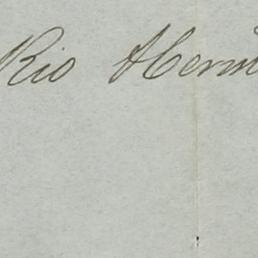 Rio Herm